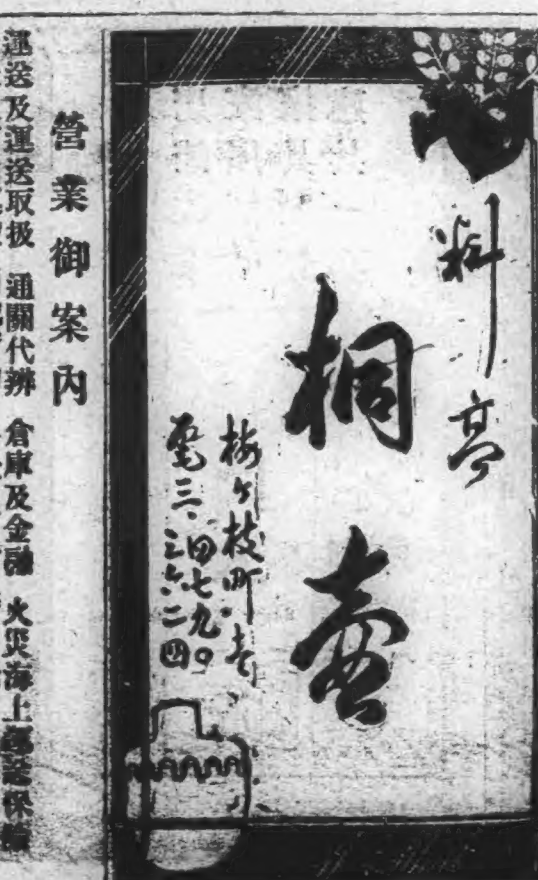 料亭
桐壺
梅ヶ枝町壱
電三、四七九〇
三六二四
營業御案內
運送及運送取扱 通關代辨 倉庫及金融 火災海上運送保險